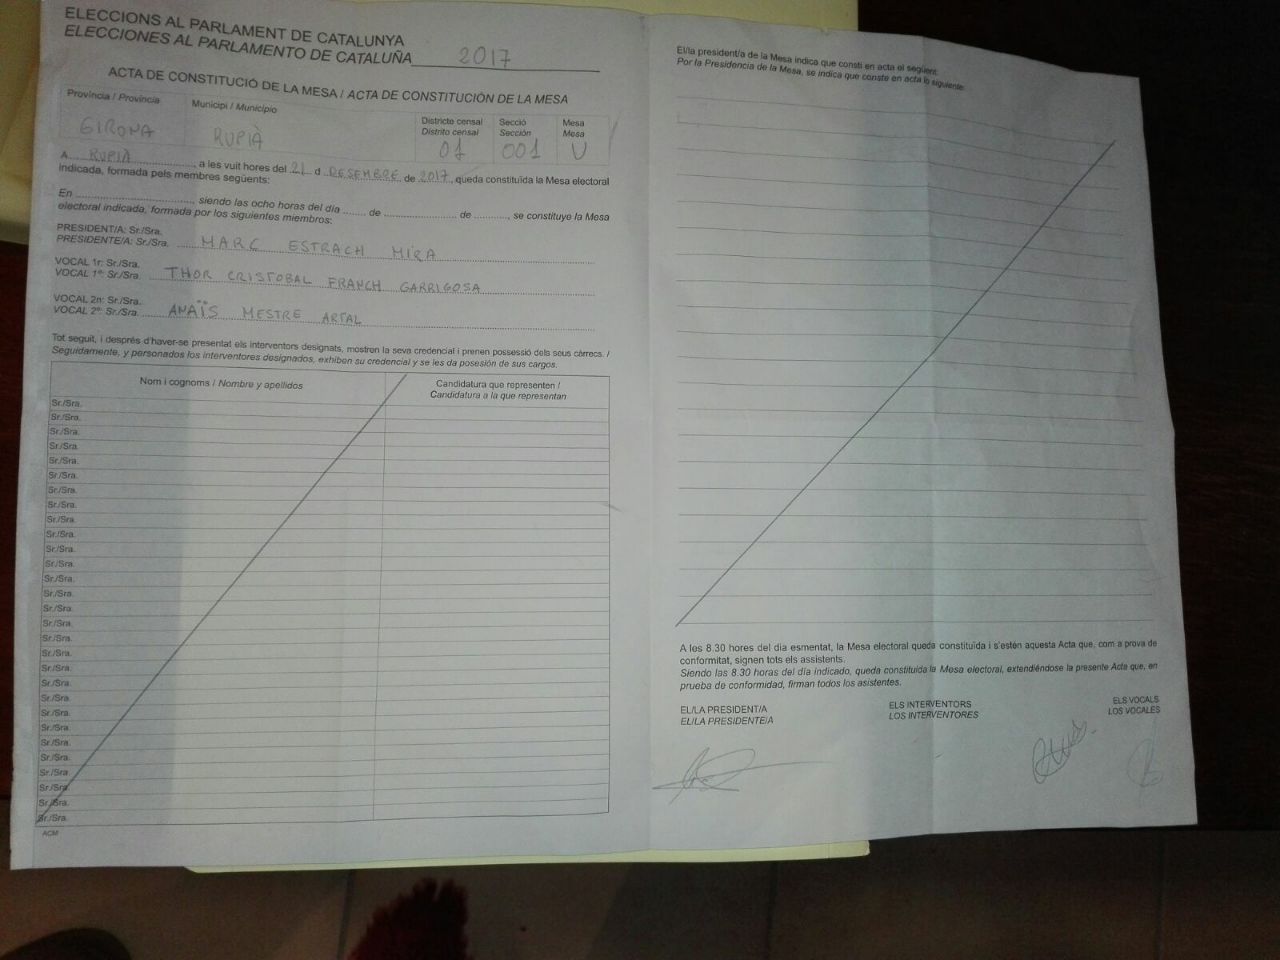 ELECCIONS AL PARLAMENT DE CATALUNYA
ELECCIONES AL PARLAMENTO DE CATALUÑA 2017
ACTA DE CONSTITUCIÓ DE LA MESA / ACTA DE CONSTITUCIÓN DE LA MESA
Província / Provincia
Municipi / Municipio
Districte censal
Distrito censal
Secció
Sección
Mesa
Mesa
GIRONA RUPIÀ 01 001 U
A RUPIÀ, a les vuit hores del 21 d DESEMBRE de 2017, queda constituïda la Mesa electoral
indicada, formada pels membres següents:
En ........................................, siendo las ocho horas del día ........ de ......................... de ............, se constituye la Mesa
electoral indicada, formada por los siguientes miembros:
PRESIDENT/A: Sr./Sra.
PRESIDENTE/A: Sr./Sra. MARC ESTRACH MIRA
VOCAL 1r: Sr./Sra.
VOCAL 1º: Sr./Sra. THOR CRISTOBAL FRANCH GARRIGOSA
VOCAL 2n: Sr./Sra.
VOCAL 2º: Sr./Sra. ANAÏS MESTRE ARTAL
Tot seguit, i després d'haver-se presentat els interventors designats, mostren la seva credencial i prenen possessió dels seus càrrecs. /
Seguidamente, y personados los interventores designados, exhiben su credencial y se les da posesión de sus cargos.
Nom i cognoms / Nombre y apellidos
Candidatura que representen /
Candidatura a la que representan
Sr./Sra.
Sr./Sra.
Sr./Sra.
Sr./Sra.
Sr./Sra.
Sr./Sra.
Sr./Sra.
Sr./Sra.
Sr./Sra.
Sr./Sra.
Sr./Sra.
Sr./Sra.
Sr./Sra.
Sr./Sra.
Sr./Sra.
Sr./Sra.
Sr./Sra.
Sr./Sra.
Sr./Sra.
Sr./Sra.
Sr./Sra.
Sr./Sra.
Sr./Sra.
Sr./Sra.
Sr./Sra.
Sr./Sra.
Sr./Sra.
Sr./Sra.
Sr./Sra.
ACM
El/la president/a de la Mesa indica que consti en acta el següent:
Por la Presidencia de la Mesa, se indica que conste en acta lo siguiente:
A les 8.30 hores del dia esmentat, la Mesa electoral queda constituïda i s'estén aquesta Acta que, com a prova de
conformitat, signen tots els assistents.
Siendo las 8.30 horas del día indicado, queda constituida la Mesa electoral, extendiéndose la presente Acta que, en
prueba de conformidad, firman todos los asistentes.
EL/LA PRESIDENT/A
EL/LA PRESIDENTE/A
ELS INTERVENTORS
LOS INTERVENTORES
ELS VOCALS
LOS VOCALES